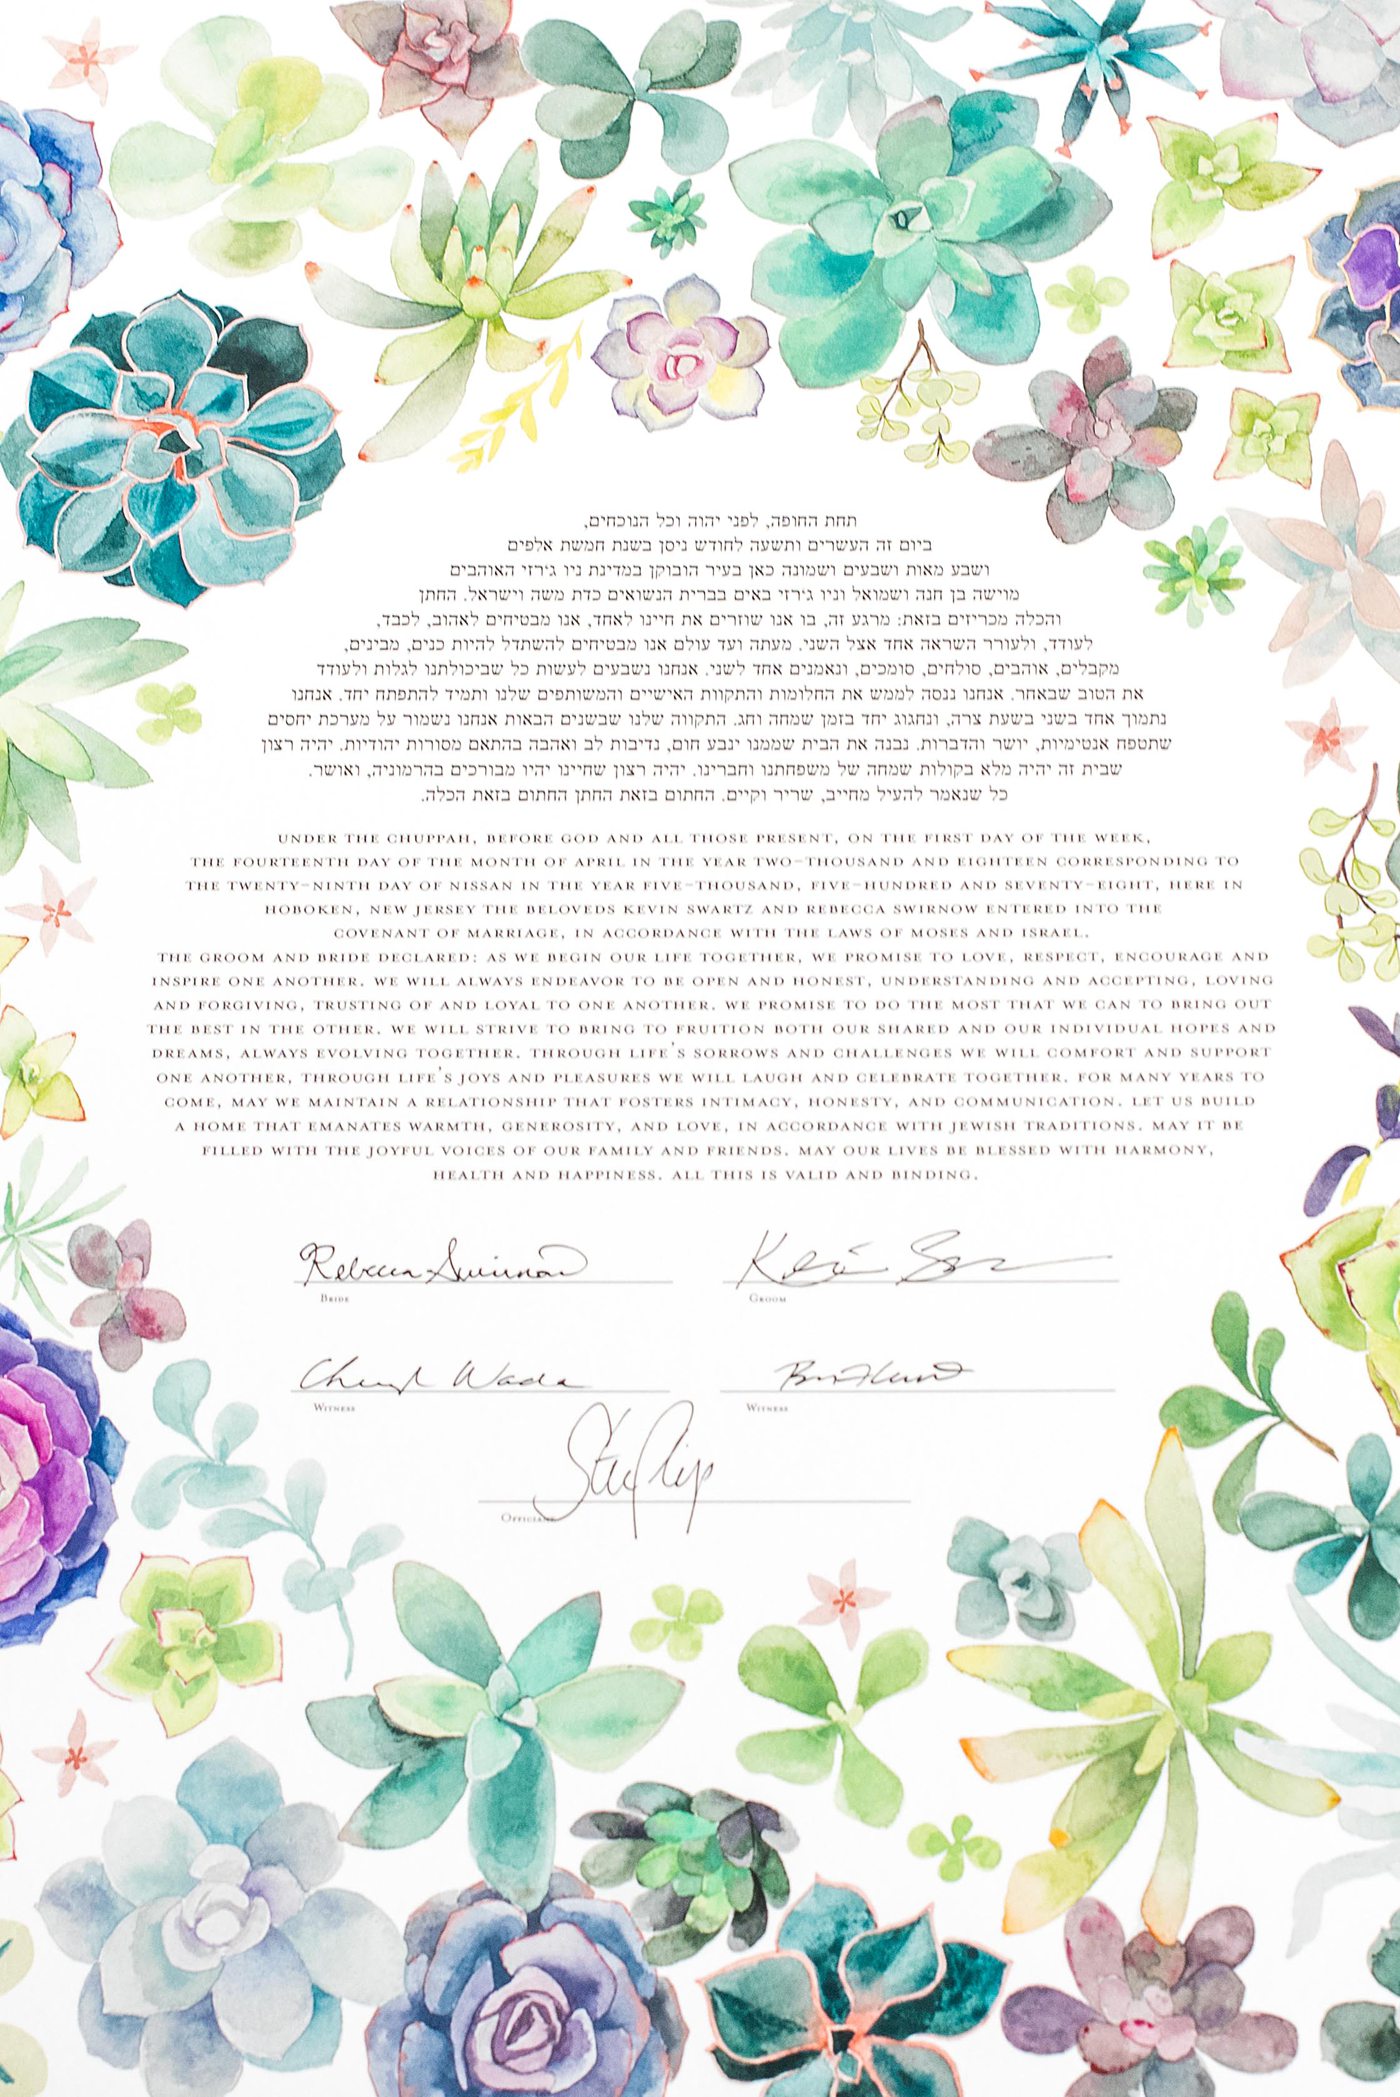 תחת החופה, לפני יהוה וכל הנוכחים,
ביום זה העשרים ותשעה לחודש ניסן בשנת חמשת אלפים
ושבע מאות ושבעים ושמונה כאן בעיר הובוקן במדינת ניו ג׳רזי האוהבים
מוישה בן חנה ושמואל וניו ג׳רזי באים בברית הנשואים כדת משה וישראל. החתן
והכלה מכריזים בזאת: מרגע זה, בו אנו שוזרים את חיינו לאחד, אנו מבטיחים לאהוב, לכבד,
לעודד, ולעורר השראה אחד אצל השני. מעתה ועד עולם אנו מבטיחים להשתדל להיות כנים, מבינים,
מקבלים, אוהבים, סולחים, סומכים, ונאמנים אחד לשני. אנחנו נשבעים לעשות כל שביכולתנו לגלות ולעודד
את הטוב שבאחר. אנחנו ננסה לממש את החלומות והתקוות האישיים והמשותפים שלנו ותמיד להתפתח יחד. אנחנו
נתמוך אחד בשני בשעת צרה, ונחגוג יחד בזמן שמחה וחג. התקווה שלנו שבשנים הבאות אנחנו נשמור על מערכת יחסים
שתטפח אנטימיות, יושר והדברות. נבנה את הבית שממנו ינבע חום, נדיבות לב ואהבה בהתאם מסורות יהודיות. יהיה רצון
שבית זה יהיה מלא בקולות שמחה של משפחתנו וחברינו. יהיה רצון שחיינו יהיו מבורכים בהרמוניה, ואושר.
כל שנאמר להעיל מחייב, שריר וקיים. החתום בזאת החתן החתום בזאת הכלה.
UNDER THE CHUPPAH, BEFORE GOD AND ALL THOSE PRESENT, ON THE FIRST DAY OF THE WEEK,
THE FOURTEENTH DAY OF THE MONTH OF APRIL IN THE YEAR TWO-THOUSAND AND EIGHTEEN CORRESPONDING TO
THE TWENTY-NINTH DAY OF NISSAN IN THE YEAR FIVE-THOUSAND, FIVE-HUNDRED AND SEVENTY-EIGHT, HERE IN
HOBOKEN, NEW JERSEY THE BELOVEDS KEVIN SWARTZ AND REBECCA SWIRNOW ENTERED INTO THE
COVENANT OF MARRIAGE, IN ACCORDANCE WITH THE LAWS OF MOSES AND ISRAEL.
THE GROOM AND BRIDE DECLARED: AS WE BEGIN OUR LIFE TOGETHER, WE PROMISE TO LOVE, RESPECT, ENCOURAGE AND
INSPIRE ONE ANOTHER. WE WILL ALWAYS ENDEAVOR TO BE OPEN AND HONEST, UNDERSTANDING AND ACCEPTING, LOVING
AND FORGIVING, TRUSTING OF AND LOYAL TO ONE ANOTHER. WE PROMISE TO DO THE MOST THAT WE CAN TO BRING OUT
THE BEST IN THE OTHER. WE WILL STRIVE TO BRING TO FRUITION BOTH OUR SHARED AND OUR INDIVIDUAL HOPES AND
DREAMS, ALWAYS EVOLVING TOGETHER. THROUGH LIFE'S SORROWS AND CHALLENGES WE WILL COMFORT AND SUPPORT
ONE ANOTHER, THROUGH LIFE'S JOYS AND PLEASURES WE WILL LAUGH AND CELEBRATE TOGETHER. FOR MANY YEARS TO
COME, MAY WE MAINTAIN A RELATIONSHIP THAT FOSTERS INTIMACY, HONESTY, AND COMMUNICATION. LET US BUILD
A HOME THAT EMANATES WARMTH, GENEROSITY, AND LOVE, IN ACCORDANCE WITH JEWISH TRADITIONS. MAY IT BE
FILLED WITH THE JOYFUL VOICES OF OUR FAMILY AND FRIENDS. MAY OUR LIVES BE BLESSED WITH HARMONY,
HEALTH AND HAPPINESS. ALL THIS IS VALID AND BINDING.
Rebecca Swirnow
BRIDE
Kevin
GROOM
Cheryl Wada
WITNESS
WITNESS
OFFICIANT